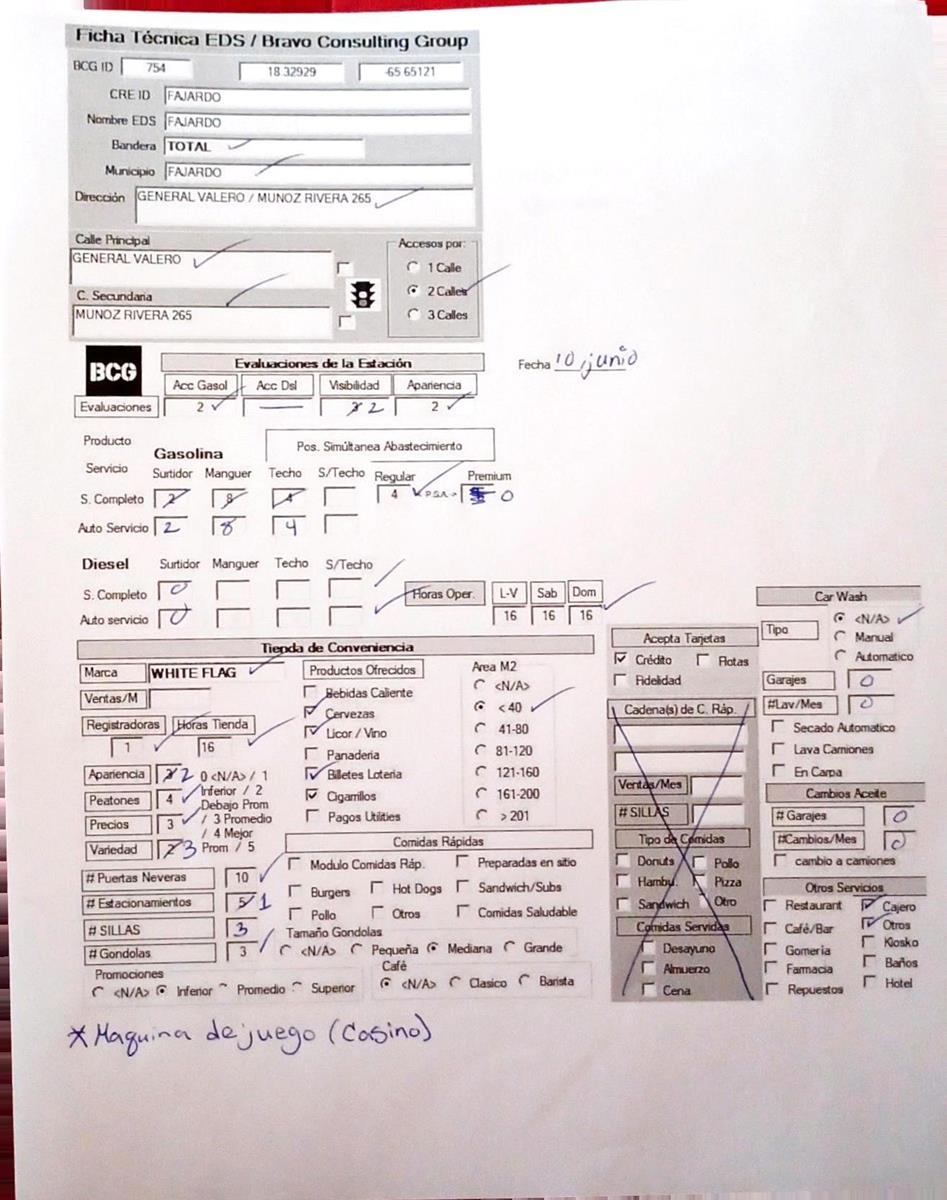 Ficha Técnica EDS / Bravo Consulting Group
BCG ID 754 18.32929 -65.65121
CRE ID FAJARDO
Nombre EDS FAJARDO
Bandera TOTAL
Municipio FAJARDO
Dirección GENERAL VALERO / MUNOZ RIVERA 265
Calle Principal Accesos por:
GENERAL VALERO 1 Calle
C. Secundaria 2 Calles
MUNOZ RIVERA 265 3 Calles
BCG Evaluaciones de la Estación Fecha 10, junio
Acc Gasol Acc Dsl Visibilidad Apariencia
Evaluaciones 2 — 2 2
Producto Gasolina Pos. Simúltanea Abastecimiento
Servicio Surtidor Manguer Techo S/Techo Regular Premium
S. Completo 2 8 4 4 0
Auto Servicio 2 8 4
Diesel Surtidor Manguer Techo S/Techo
S. Completo 0 Horas Oper. L-V Sab Dom
Auto servicio 0 16 16 16
Car Wash
Tipo <N/A>
Manual
Automatico
Garajes 0
#Lav/Mes 0
Secado Automatico
Lava Camiones
En Carpa
Cambios Aceite
# Garajes 0
#Cambios/Mes 0
cambio a camiones
Tienda de Conveniencia
Marca WHITE FLAG
Ventas/M
Registradoras Horas Tienda
1 16
Apariencia 2 0 <N/A> / 1
Peatones 4 Inferior / 2
Debajo Prom
Precios 3 / 3 Promedio
/ 4 Mejor
Variedad 2 3 Prom / 5
# Puertas Neveras 10
# Estacionamientos 5 1
# SILLAS 3
# Gondolas 3
Productos Ofrecidos
Bebidas Caliente
Cervezas
Licor / Vino
Panaderia
Billetes Loteria
Cigarrillos
Pagos Utilities
Area M2
<N/A>
< 40
41-80
81-120
121-160
161-200
> 201
Comidas Rápidas
Modulo Comidas Ráp. Preparadas en sitio
Burgers Hot Dogs Sandwich/Subs
Pollo Otros Comidas Saludable
Tamaño Gondolas
<N/A> Pequeña Mediana Grande
Promociones
<N/A> Inferior Promedio Superior
Café
<N/A> Clasico Barista
Acepta Tarjetas
Crédito Flotas
Fidelidad
Cadena(s) de C. Ráp.
Ventas/Mes
# SILLAS
Tipo de Comidas
Donuts Pollo
Hambu. Pizza
Sandwich Otro
Comidas Servidas
Desayuno
Almuerzo
Cena
Otros Servicios
Restaurant Cajero
Café/Bar Otros
Gomeria Kiosko
Farmacia Baños
Repuestos Hotel
* Maquina de juego (Casino)